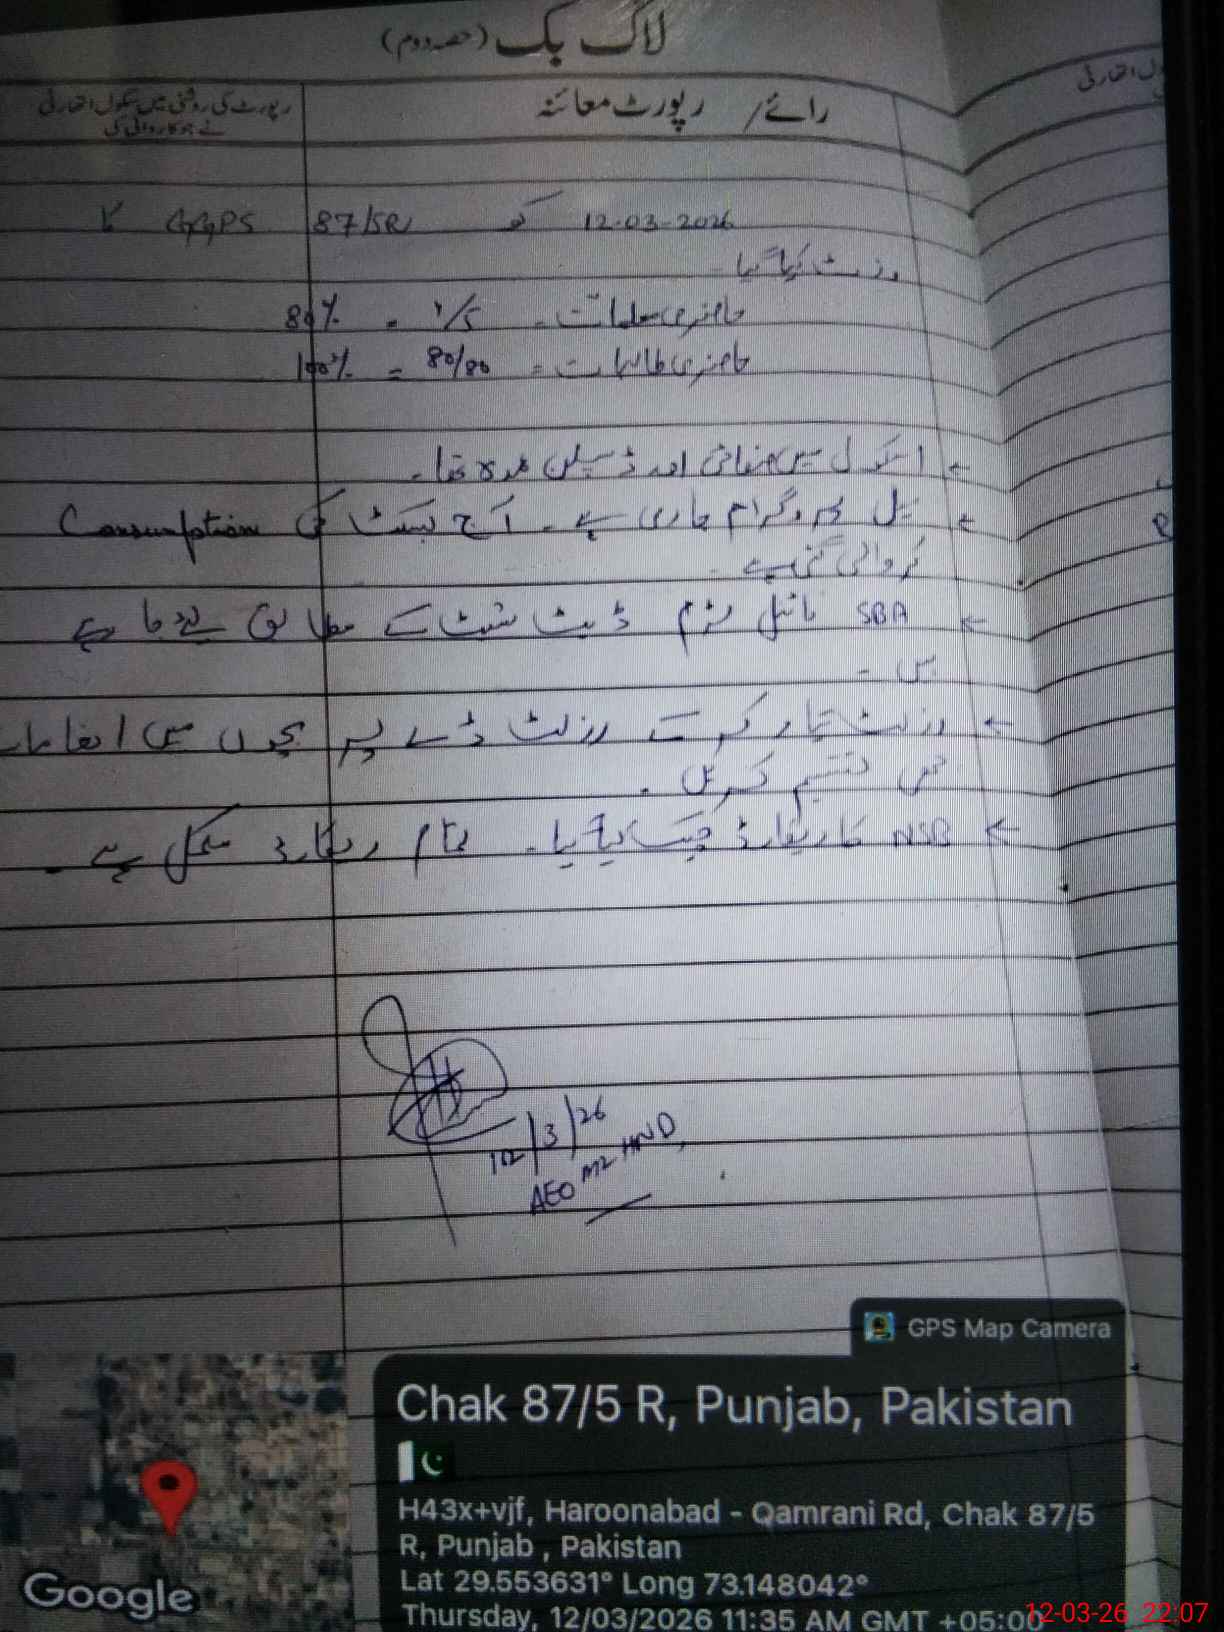 لاگ بک (حصہ دوم)
رائے / رپورٹ معائنہ
رپورٹ کی روشنی میں سکول اتھارٹی
نے جو کاروائی کی
12-03-2026 کو 87/5R GGPS کا
وزٹ کیا گیا
حاضری معلمات = /5 = 80%
حاضری طالبات = 80/80 = 100%
← اسکول میں صفائی اور ڈسپلن عمدہ تھا۔
← پروگرام جاری ہے۔ آج بسکٹ کی Consumption
کروائی گئی ہے
← SBA فائنل ٹرم ڈیٹ شیٹ کے مطابق ہے
ہیں۔
← رزلٹ تیار کر کے رزلٹ ڈے پر بچوں میں انعامات
تقسیم کریں۔
← NSB کا ریکارڈ چیک کیا گیا۔ تمام ریکارڈ مکمل ہے۔
12/3/26
AEO M2 HND
GPS Map Camera
Chak 87/5 R, Punjab, Pakistan
H43x+vjf, Haroonabad - Qamrani Rd, Chak 87/5
R, Punjab , Pakistan
Lat 29.553631° Long 73.148042°
Thursday, 12/03/2026 11:35 AM GMT +05:00
Google
12-03-26 22:07